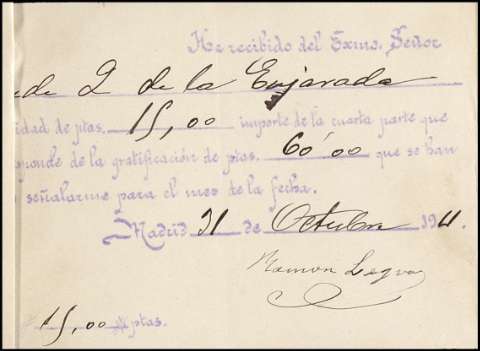 He recibido del Exmo. Señor
de la Enjarada
idad de ptas. 15,00 importe de la cuarta parte que
sponde de la gratificación de ptas. 60'00 que se han
señalarme para el mes de la fecha.
Madrid 31 de Octubre 1911.
Ramón
15,00 ptas.